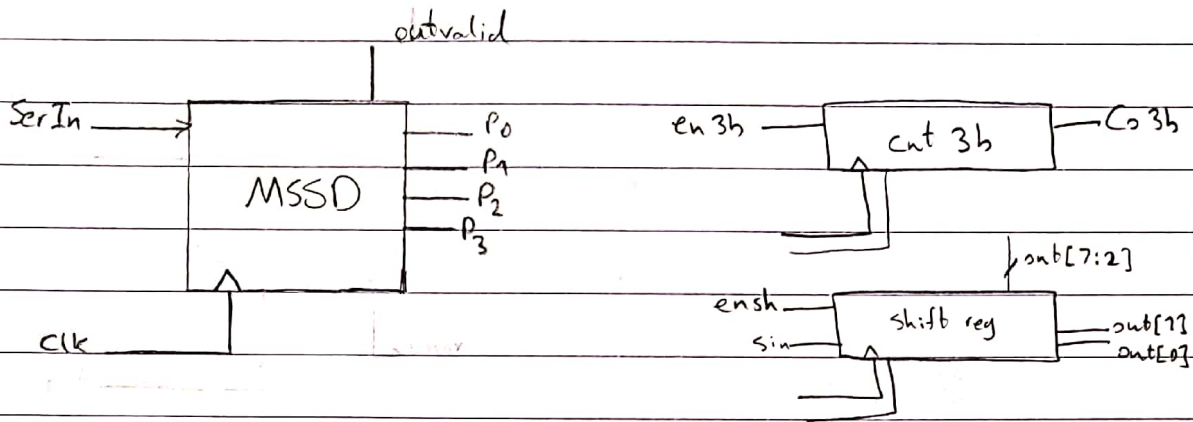 outvalid
SerIn
P0
P1
P2
P3
MSSD
clk
en3b
cnt 3b
Co 3b
out[7:2]
ensh
sin
shift reg
out[1]
out[0]